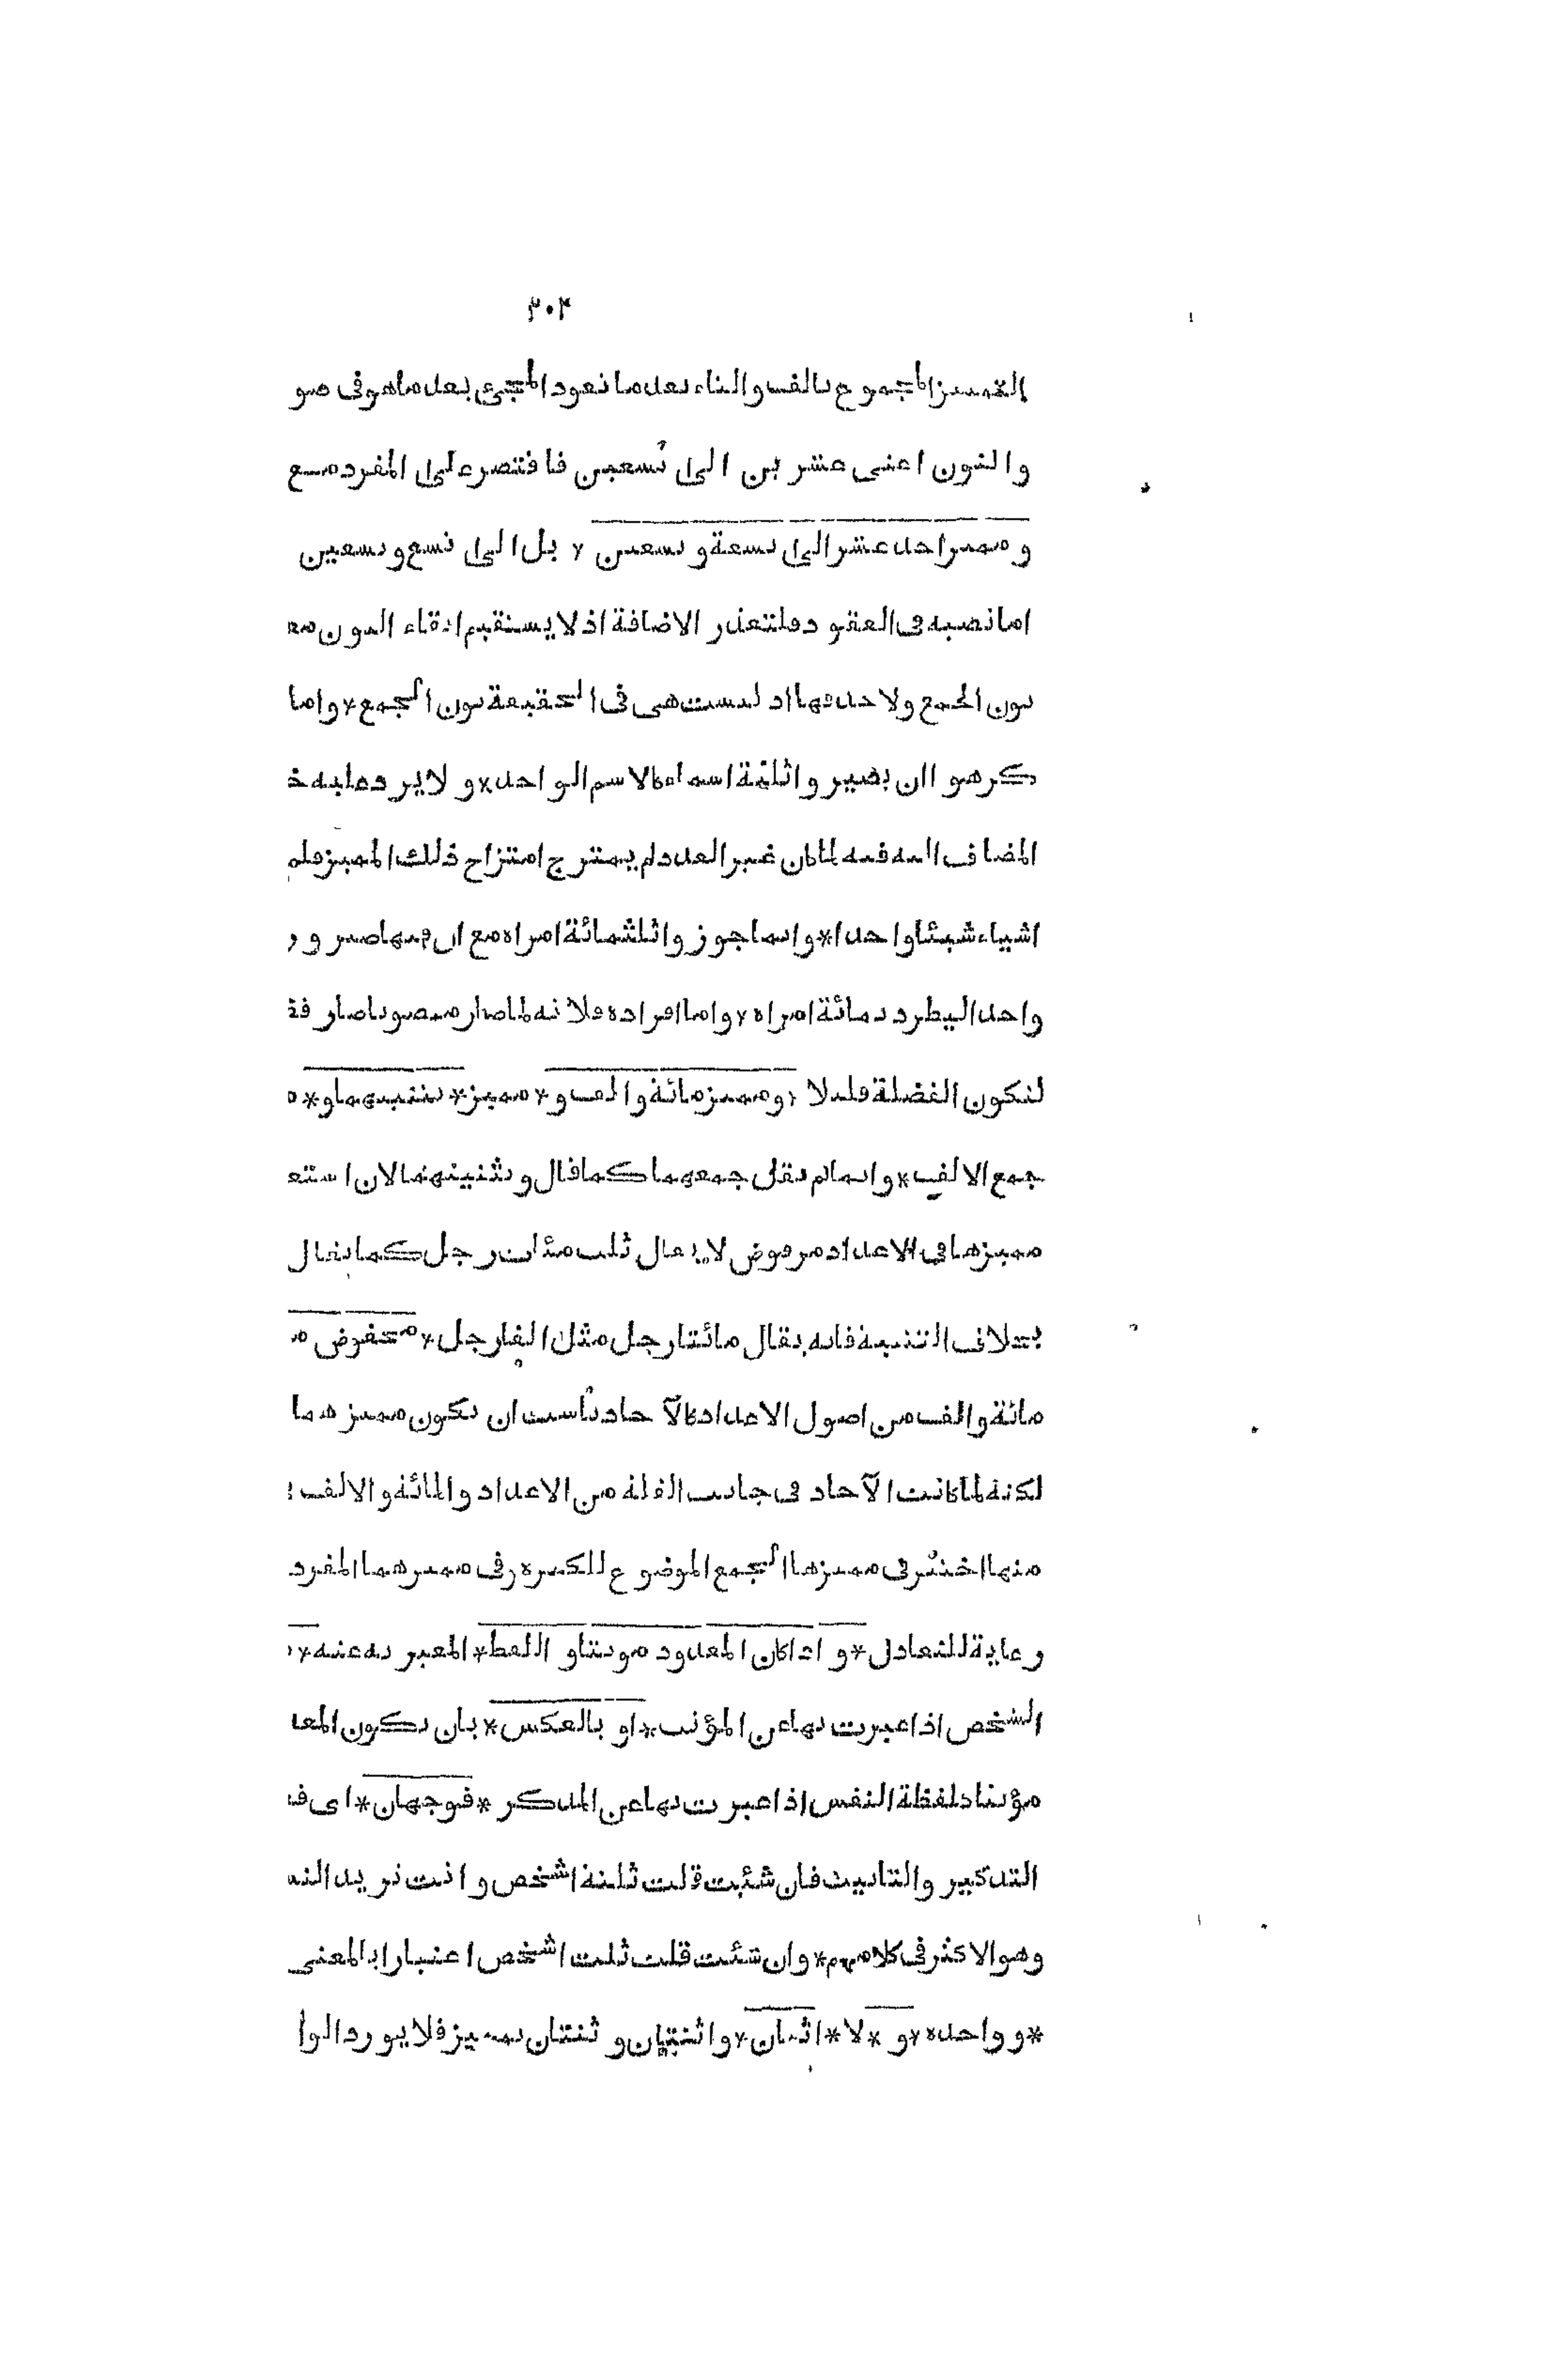 ٣٠٢
التمييز المجموع بالف والتاء بعد ما تعود المجئ بعد ما هو فى صو
والنون اعنى عشرين الى تسعين فاقتصر على المفرد مع
ومميز احد عشر الى تسعة وتسعين * بل الى تسع وتسعين
اما نصبه فى العقود فلتعذر الاضافة اذ لا يستقيم ابقاء النون مع
نون الجمع ولا حذفها اذ ليست هى فى الحقيقة نون الجمع * واما
كرهوا ان يصيروا ثلثة اسماء كالاسم الواحد * ولا يرد عليه خ
المضاف اليه فيه لما كان غير العدد لم يمتزج امتزاج ذلك المميز فلم
اشياء شيئا واحدا * وانما جوزوا ثلثمائة امراة مع ان فيها صيرور
واحدا ليطرد بمائة امراة * واما افراده فلانه لما صار منصوبا صار فض
لتكون الفضلة قليلا * ومميز مائة والف و * مميز * تثنيتهما و * م
جمع الالف * وانما لم يقل جمعهما كما قال وتثنيتهما لان استع
مميزها فى الاعداد مرفوض لا يقال ثلث مئات رجل كما يقال
بخلاف التثنية فانه يقال مائتا رجل مثل الفا رجل * مخفوض م
مائة والف من اصول الاعداد كالآحاد ناسب ان يكون مميزهما
لكنه لما كانت الآحاد فى جانب القلة من الاعداد والمائة والالف
منها اختير فى مميزها الجمع الموضوع للكثرة وفى مميزهما المفرد
رعاية للتعادل * واذا كان المعدود مونثا واللفظ * المعبر به عنه *
الشخص اذا عبرت بها عن المؤنث * او بالعكس * بان يكون المعد
مؤنثا كلفظة النفس اذا عبرت بها عن المذكر * فوجهان * اى ف
التذكير والتانيث فان شئت قلت ثلثة اشخص وانت تريد النس
وهو الاكثر فى كلامهم * وان شئت قلت ثلث اشخص اعتبارا بالمعنى
* وواحدة * و * لا * اثنان * واثنتان وثنتان بمميز فلا يورد الوا